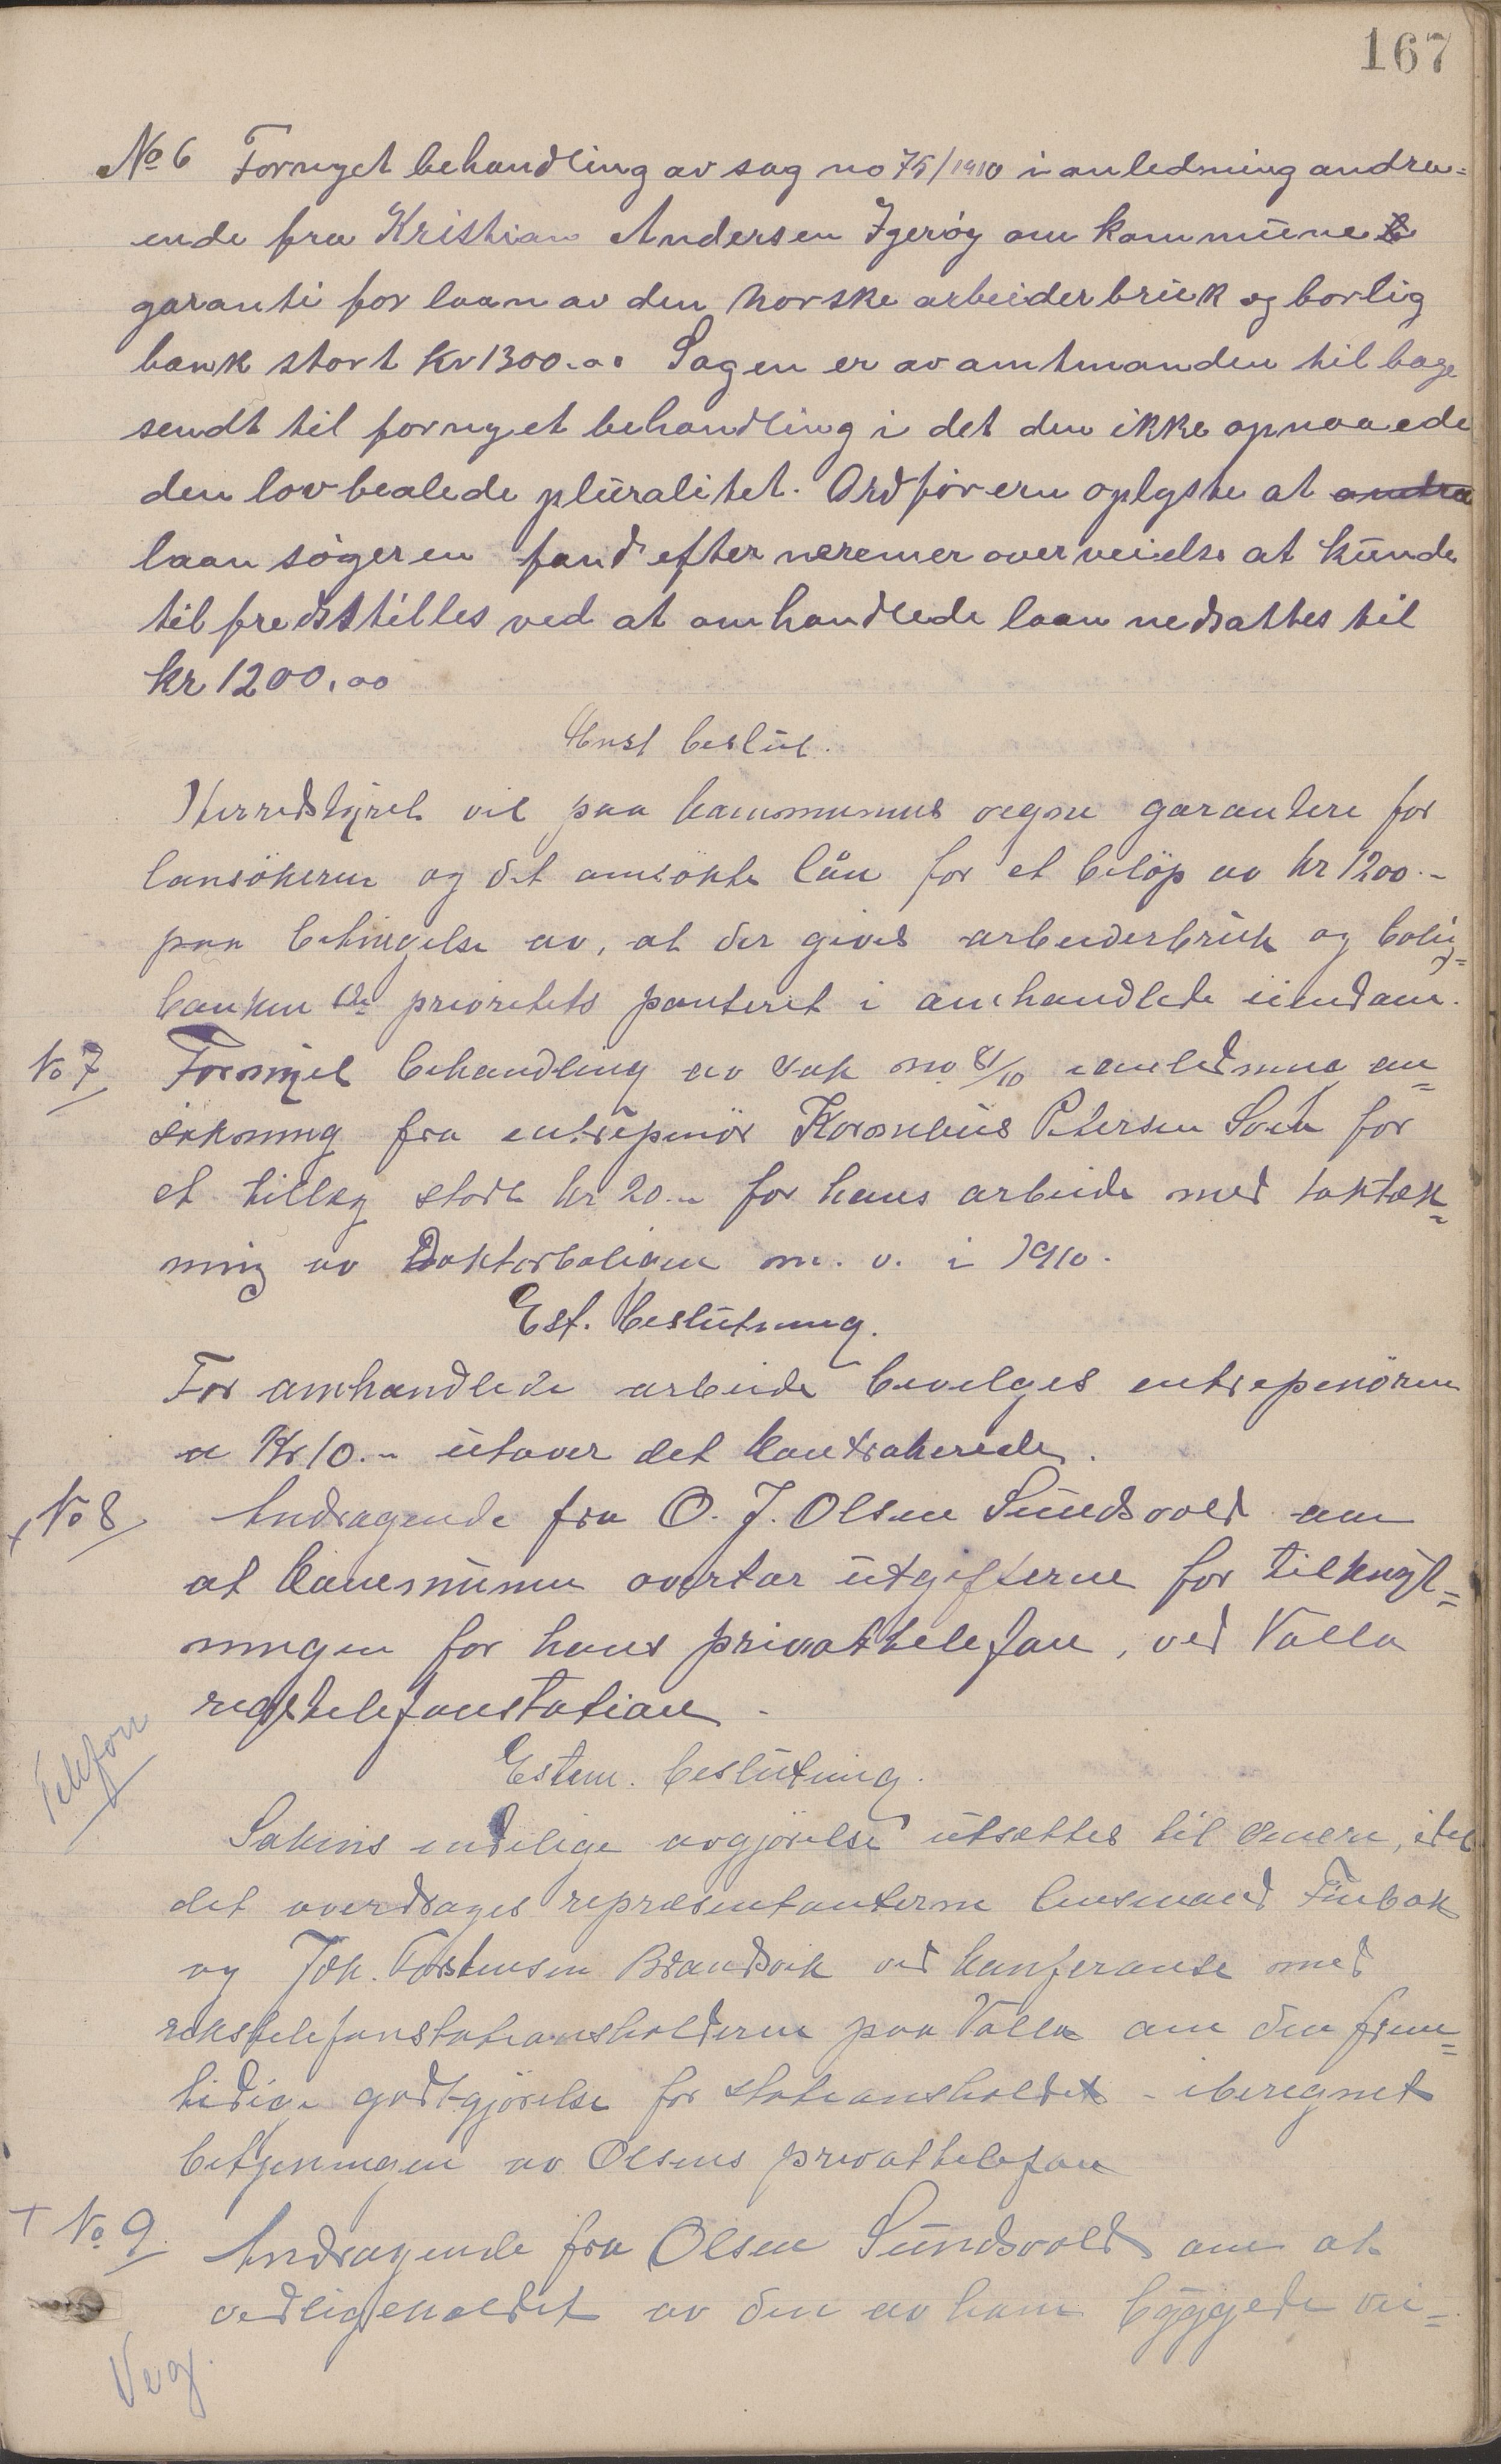 167
No 6 Fornyet behandling av sag no 75/1910 i anledning andra-
ende fra Kristian Andersen Igerøy om kommune
garanti for laan av den Norske arbeiderbruk og borlig
bank stort Kr 1300.00 Sagen er av amtmanden tilbage
sendt til fornyet behandling i det den ikke opnaaede
den lovbealede pluralitet. Ordføreren oplyste at andra
laansøgeren fand efter næremer overveielse at kunde
tilfredsstilles ved at omhandlede laan nedsattes til
kr 1200.00
Enst beslut.
Herredstyret vil paa kommunens vegne garantere for
lansökeren og det omsökte lån for et belöp av kr 1200.-
paa betingelse av, at der gives arbeiderbruk og bolig-
banken 1ste prioritets panteret i omhandlede eiendom.
No 7 Fornyet behandling av sak no. 81/10 i anledning an-
søkning fra entrepenör Kornelius Petersen Sveta for
et tillæg stort kr 20.- for hans arbeide med taktæk-
ning av Doktorboligen m. v. i 1910.
Est. beslutning.
For omhandlede arbeide bevilges entrepenören
a Kr 10.- utover det kontraherede.
x No 8 Andragende fra O. J. Olsen Sundsvold om
at kommunen overtar utgifterne for tilknyt-
ningen for hans privattelefon, ved Valla
rigstelefonstation.
Telefon
Estem. beslutning.
Sakens endelige avgjörelse utsattes til senere, idet
det overdrages repræsentanterne lensmand Finbak
og Joh. Torstensen Brandsvik ved konferanse med
rikstelefonstationsholderen paa Valla om den frem-
tidige godtgjörelse for stationsholdet - iberegnet
betjeningen av Olsens privattelefon
+ No 9. Andragende fra Olsen Sundsvold om at
vedligeholdet av den av ham byggede vei-
Veg.